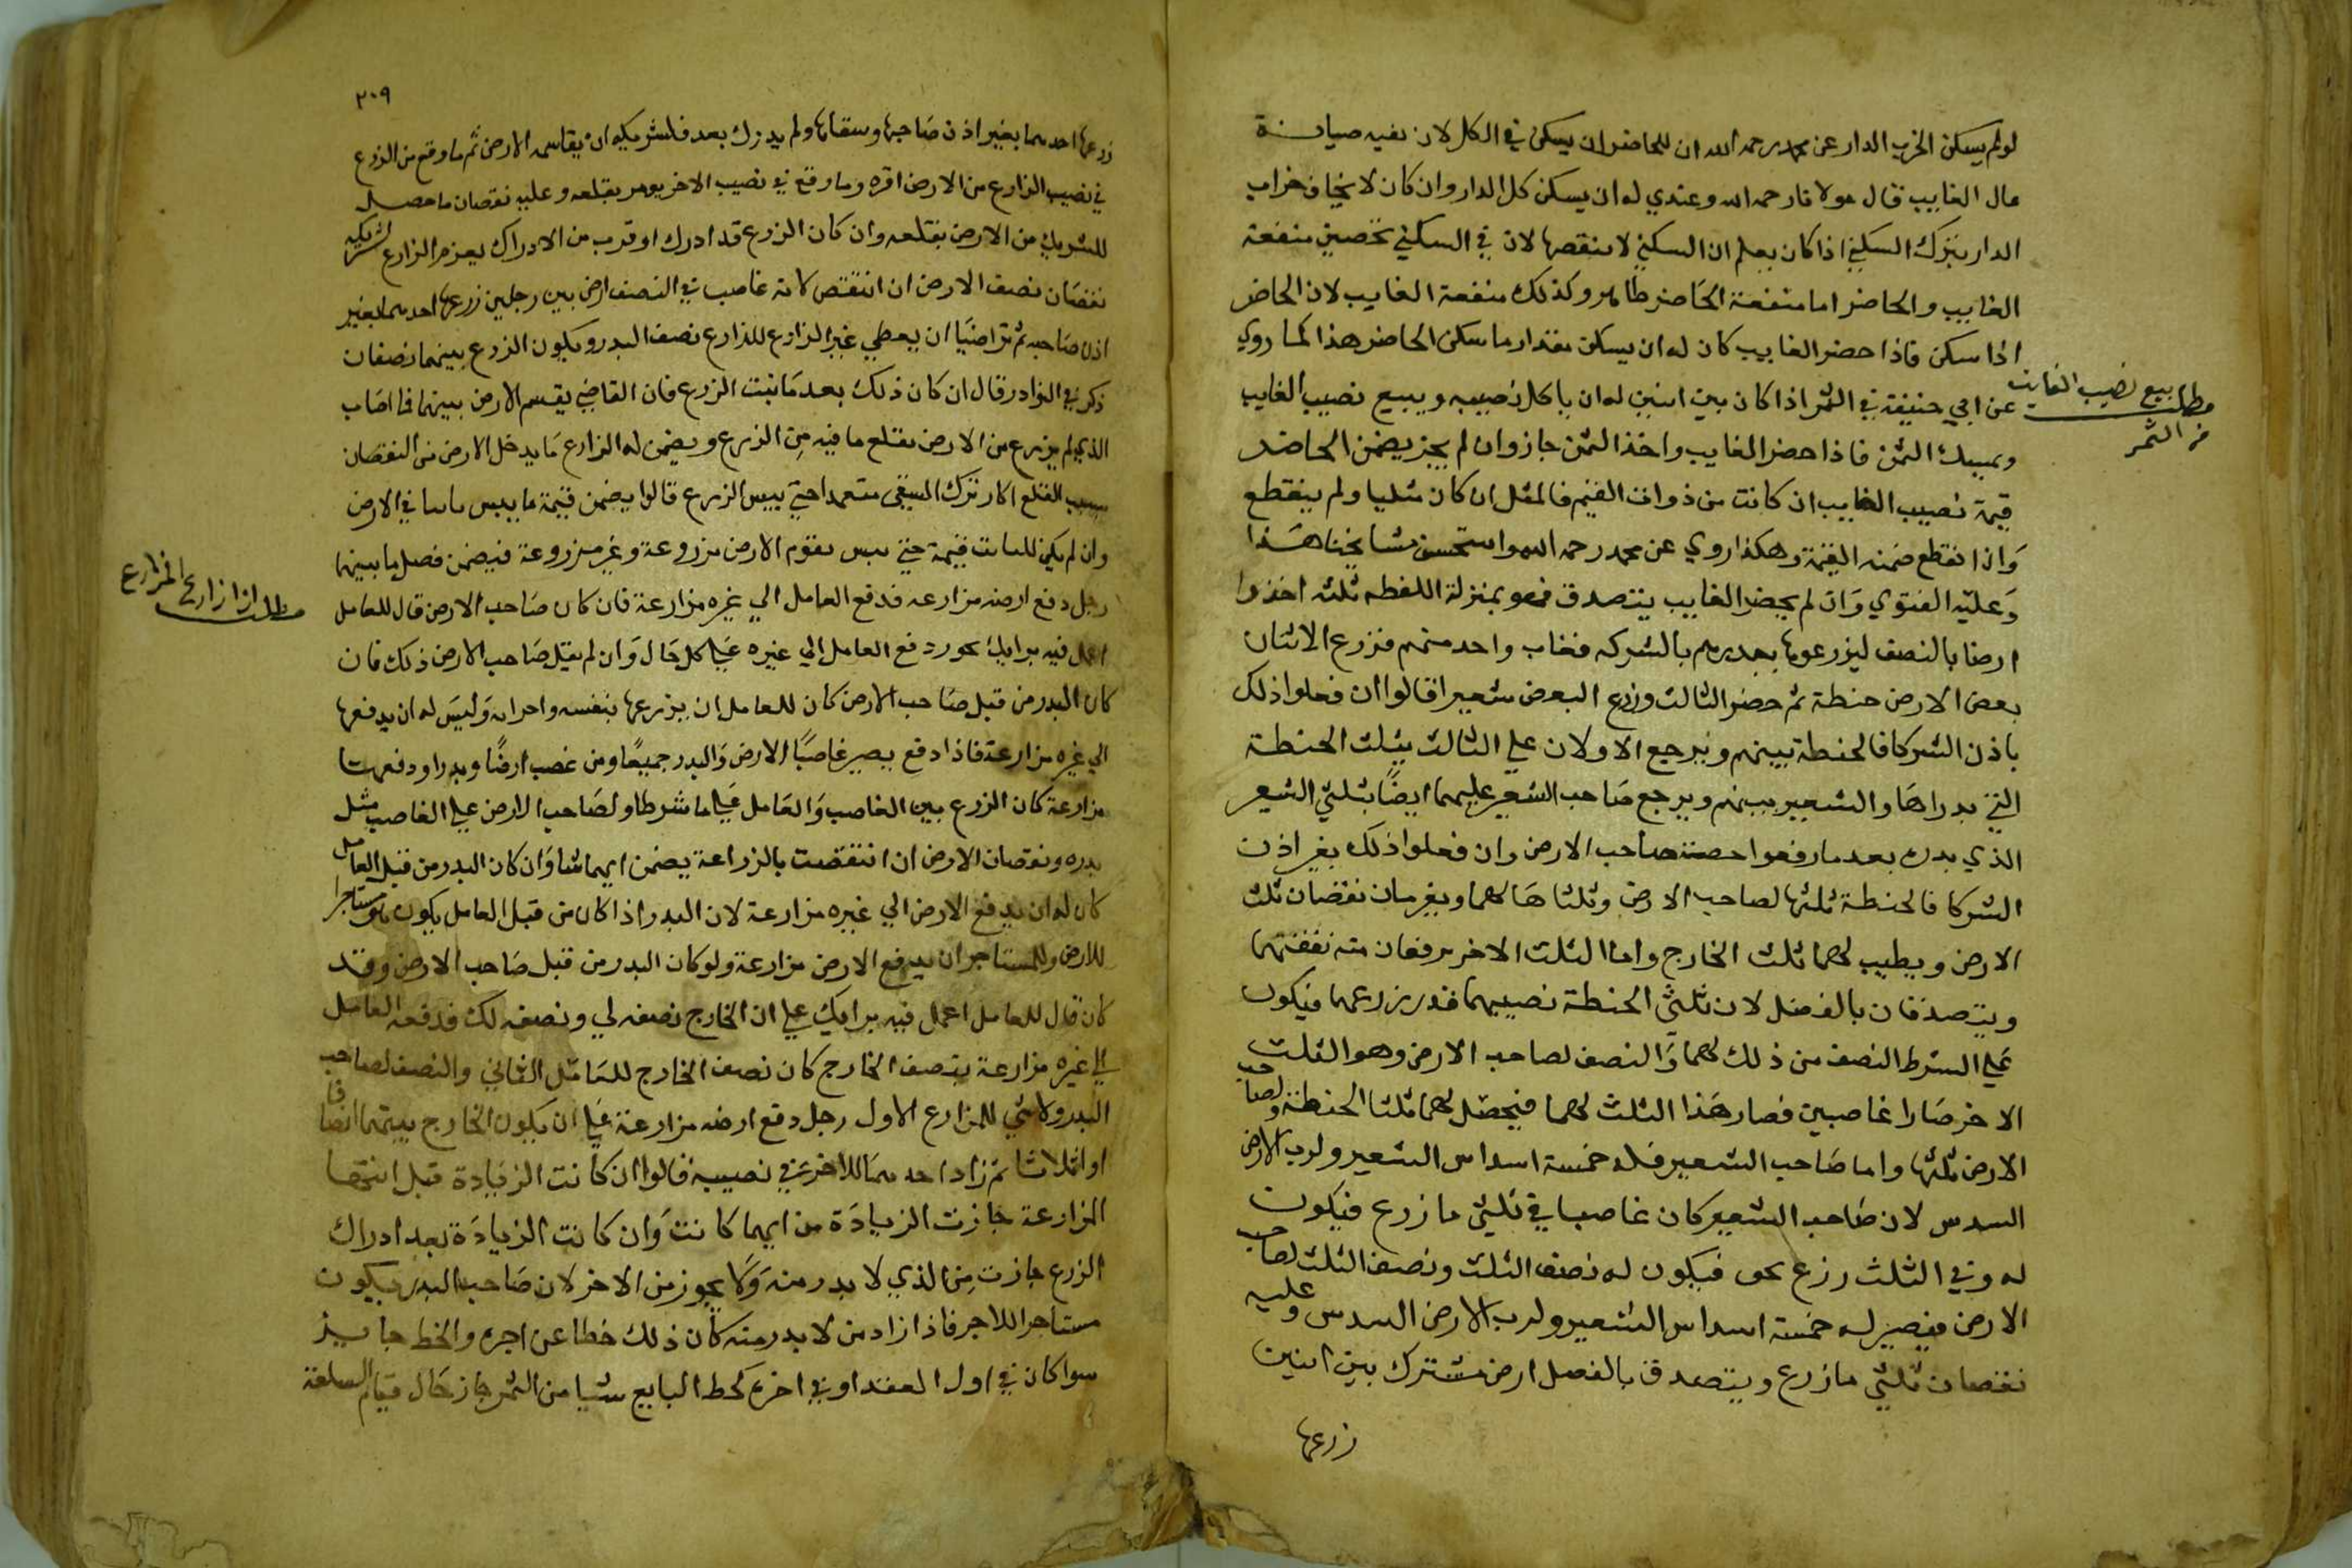 لو لم يسكن الخرب الدار عن محمد رحمه الله ان للحاضر ان يسكن في الكل لان فيه صيانة
مال الغايب قال مولانا رحمه الله وعندي له ان يسكن كل الدار وان كان لا يخاف خراب
الدار بترك السكني اذا كان يعلم ان السكني لا ينقصها لان في السكني تحصين منفعة
الغايب والحاضر اما منفعة الحاضر ظاهر وكذلك منفعة الغايب لان الحاضر
اذا سكن فاذا حضر الغايب كان له ان يسكن مقدار ما سكن الحاضر هذا كما روي
مطلب بيع نصيب الغايب
من الثمر
عن ابي حنيفة في الثمر اذا كان بين اثنين له ان ياكل نصيبه ويبيع نصيب الغايب
ويمسك الثمن فاذا حضر الغايب واخذ الثمن جاز وان لم يجز يضمن الحاضر
قيمة نصيب الغايب ان كانت من ذوات القيم فالمثل ان كان مثليا ولم ينقطع
وَاذا انقطع ضمنه القيمة وهكذا روي عن محمد رحمه الله واستحسن مشايخنا هَذا
وَعليه الفتوي وَان لم يحضر الغايب يتصدق فهو بمنزلة اللقطه ثلثه اخذوا
ارضا بالنصف ليزرعوها ببذرهم بالشركه فغاب واحد منهم فزرع الاثنان
بعض الارض حنطة ثم حضر الثالث وزرع البعض شعيرا قالوا ان فعلوا ذلك
باذن الشركا فالحنطة بينهم ويرجع الاولان علي الثالث بثلث الحنطة
التي بدراهَا والشعير بينهم ويرجع صَاحب الشعير عليهما ايضًا بثلثي الشعير
الذي بدره بعد ما رفعوا حصة صاحب الارض وان فعلوا ذلك بغير اذن
الشركا فالحنطة ثلثها لصاحب الارض وثلثاهَا لهما ويغرمان نقصان ثلث
الارض ويطيب لهما ثلث الخارج واما الثلث الاخر يرفعان منه نفقتهما
ويتصدقان بالفضل لان ثلثي الحنطة نصيبهما قد زرعهما فيكون
عَلي الشرط النصف من ذلك لهما وَالنصف لصاحب الارض وهو الثلث
الاخر صَارا غاصبين فصار هَذا الثلث لهما فيحصل لهما ثلثا الحنطة ولصاحب
الارض ثلثها واما صَاحب الشعير فله خمسة اسداس الشعير ولرب الارض
السدس لان صَاحب الشعير كان غاصبا في ثلثي ما زرع فيكون
له وفي الثلث زرع بحق فيكون له نصف الثلث ونصف الثلث لصاحب
الارض فيصير له خمسة اسداس الشعير ولرب الارض السدس وعليه
نقصان ثلثي ما زرع ويتصدق بالفضل ارض مشترك بين اثنين
زرعها
٢٠٩
زرعها احدهما بغير اذن صَاحبها وسقاها ولم يدرك بعد فلشريكه ان يقاسمه الارض ثم ما وقع من الزرع
في نصيب الزارع من الارض اقره وما وقع في نصيب الاخر يومر بقلعه وعليه نقصان ما حصل
للشريك من الارض بقلعه وان كان الزرع قد ادرك او قرب من الادراك يغرم الزارع لشريكه
نقصَان نصف الارض ان انتقص لانه غاصب في النصف ارض بين رجلين زرعها احدهما بغير
اذن صَاحبه ثم تراضيَا ان يعطي غير الزارع للزارع نصف البدر ويكون الزرع بينهما نصفان
ذكر في النوادر قال ان كان ذلك بعد مَا نبت الزرع فان القاضي يقسم الارض بينهما فما اصَاب
الذي لم يزرع من الارض يقلع ما فيه مِن الزرع ويضمن له الزارع مَا يدخل الارض من النقصان
بسبب القلع اكار ترك السقي متعمدا حتي يبس الزرع قالوا يضمن قيمة ما يبس نابتا في الارض
وان لم يكن للنابت قيمة حتي يبس يقوم الارض مزروعة وغير مزروعة فيضمن فضل ما بينهما
مطلب اذا زارع المزارع
رجل دفع ارضه مزارعه فدفع العامل الي غيره مزارعة فان كان صَاحب الارض قال للعامل
اعمل فيه برايك يجوز دفع العامل الي غيره عَلي كل حَال وَان لم يقل صَاحب الارض ذلك فان
كان البدر من قبل صَاحب الارض كان للعامل ان يزرعها بنفسه واجرايه وَليسَ له ان يدفعها
الي غيره مزارعة فاذا دفع يصير غاصبًا الارض وَالبدر جميعًا ومن غصب ارضًا وبدرا ودفعهما
مزارعة كان الزرع بين الغاصب وَالعَامل عَلي ما شرطا ولصَاحب الارض علي الغاصب مثل
بدره ونقصان الارض ان انتقصت بالزراعة يضمن ايهما شا وَان كان البدر من قبل العامل
كان له ان يدفع الارض الي غيره مزارعة لان البدر اذا كان من قبل العامل يكون هو مستاجرا
للارض وللمستاجر ان يدفع الارض مزارعة ولو كان البدر من قبل صَاحب الارض وقد
كان قال للعامل اعمل فيه برايك علي ان الخارج نصفه لي ونصفه لك فدفعه العامل
الي غيره مزارعة بنصف الخارج كان نصف الخارج للعَامل الثاني والنصف لصاحب
البدر ولا شي للمزارع الاول رجل دفع ارضه مزارعة عَلي ان يكون الخارج بينهما انصافا
او اثلاثا ثم زاد احدهمَا للاخر في نصيبه قالوا ان كانت الزيَادة قبل استحصا
الزارعة جَازت الزيادَة من ايهما كانت وَان كانت الزيَادَة بعد ادراك
الزرع جازت مِن الذي لا بدر منه وَلا يجوز من الاخر لان صَاحب البدر يكون
مستاجرا للاجر فاذا زاد من لا بدر منه كان ذلك حطا عن اجره والحط جايز
سوا كان في اول العقد او في اخره كحط البايع شيا من الثمن جاز حَال قيام السلعة